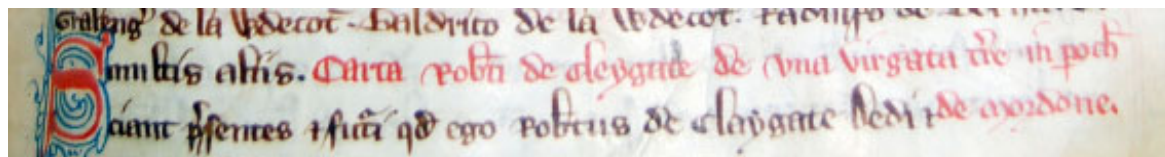 de la Wdecot. Baldrico de la Wdecot.
multis aliis. Carta Robti de Cleygate de una virgata tre in poch
Sciant psentes ⁊ futi qđ ego Robtus de Claygate dedi ⁊ de Mordone.